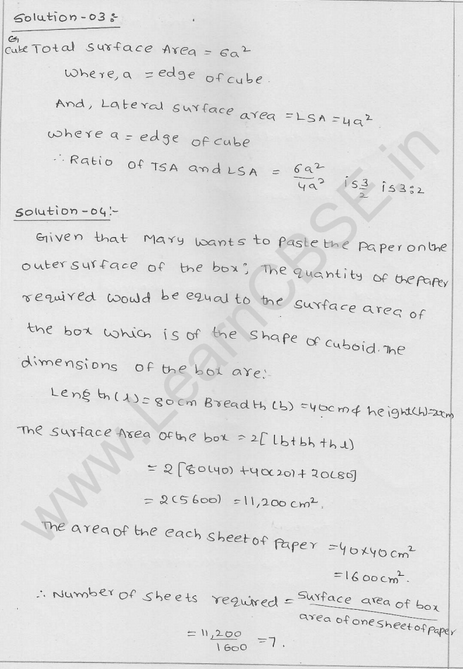 Solution-03:-
Cube Total Surface Area = 6a²
where, a = edge of cube
And, Lateral surface area = LSA = 4a²
where a = edge of cube
∴ Ratio of TSA and LSA = 6a²/4a² is 3/2 is 3:2
Solution-04:-
Given that Mary wants to Paste the Paper on the
outer surface of the box; The quantity of the paper
required would be equal to the surface area of
the box which is of the shape of cuboid. The
dimensions of the box are:
Length (l) = 80cm Breadth (b) = 40cm & height(h)=20cm
The surface Area of the box = 2[lb+bh+hl)
= 2[80(40)+40(20)+20(80]
= 2(5600) = 11,200cm².
The area of the each sheet of Paper = 40×40cm²
= 1600cm².
∴ Number of sheets required = surface area of box/area of one sheet of paper
= 11,200/1600 = 7.
www.LearnCBSE.in